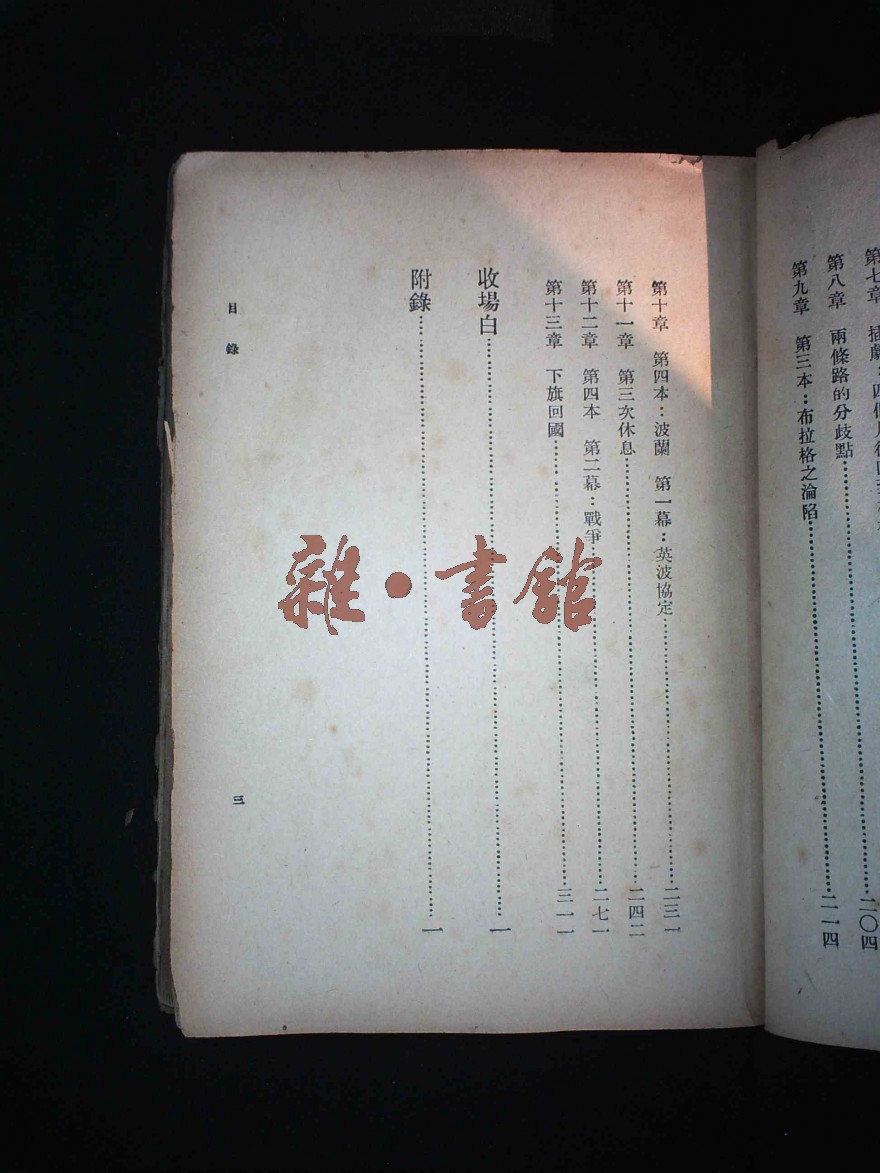 第七章 插劇：四個月後
第八章 兩條路的分歧點……二〇四
第九章 第三本：布拉格之淪陷……二一四
第十章 第四本：波蘭 第一幕：英波協定……二三一
第十一章 第三次休息……二四二
第十二章 第四本 第二幕：戰爭……二七一
第十三章 下旗回國……三一一
收場白……一
附錄……一
目錄
三
雜·書館